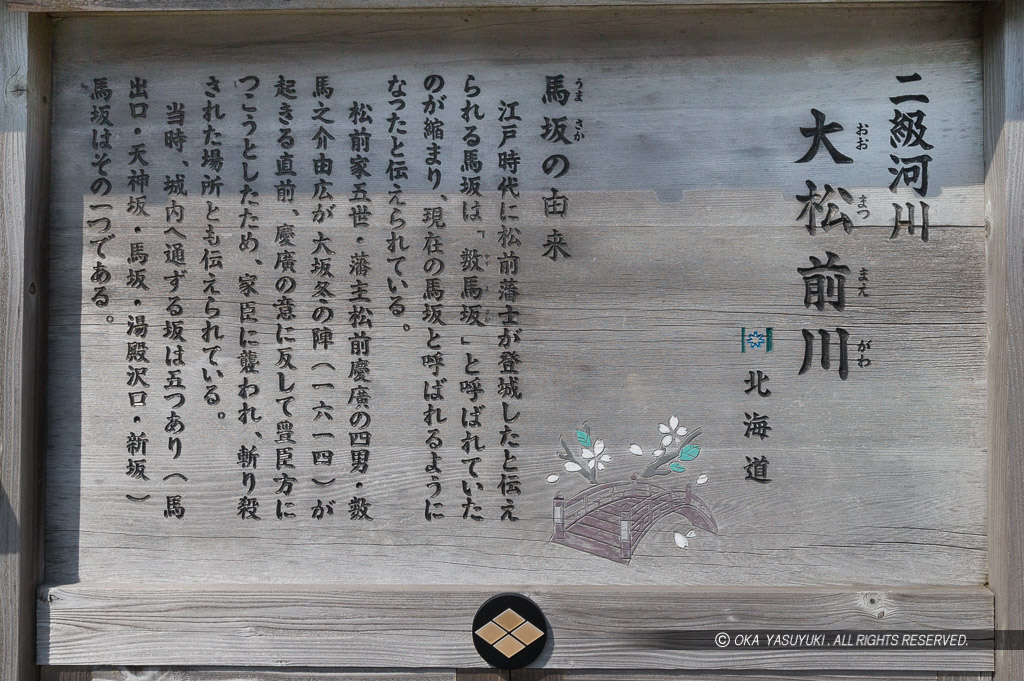 二級河川
大松前川
おお まつ まえ がわ
北海道
馬坂の由来
うま さか
江戸時代に松前藩士が登城したと伝え
られる馬坂は「数馬坂」と呼ばれていた
のが縮まり、現在の馬坂と呼ばれるように
なったと伝えられている。
松前家五世・藩主松前慶廣の四男・数
馬之介由広が大坂冬の陣（一六一四）が
起きる直前、慶廣の意に反して豊臣方に
つこうとしたため、家臣に襲われ、斬り殺
された場所とも伝えられている。
当時、城内へ通ずる坂は五つあり（馬
出口・天神坂・馬坂・湯殿沢口・新坂）
馬坂はその一つである。
© OKA YASUYUKI. ALL RIGHTS RESERVED.